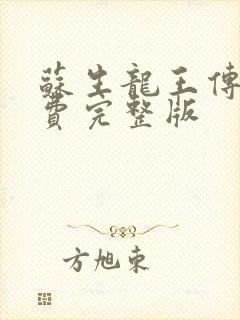 蘇生龍王傳
費完整版
方旭東